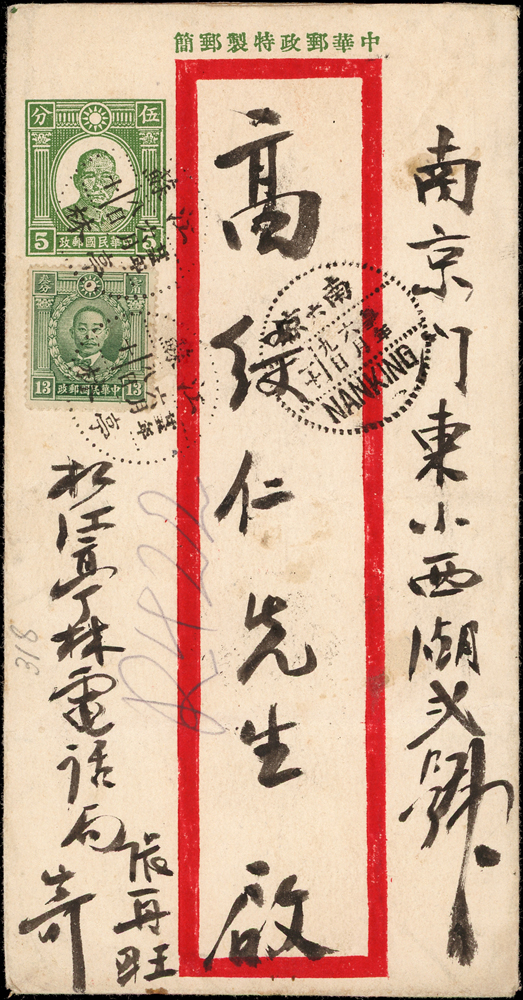 中華郵政特製郵簡
南京門東小西湖弍號
高 仁先生啟
伍分
5 中華民國郵政 5
叁分
13 中華民國郵政 13
南京
NANKING
江蘇
亭林
江蘇
松江亭林電话局
張再旺
寄
R422
318